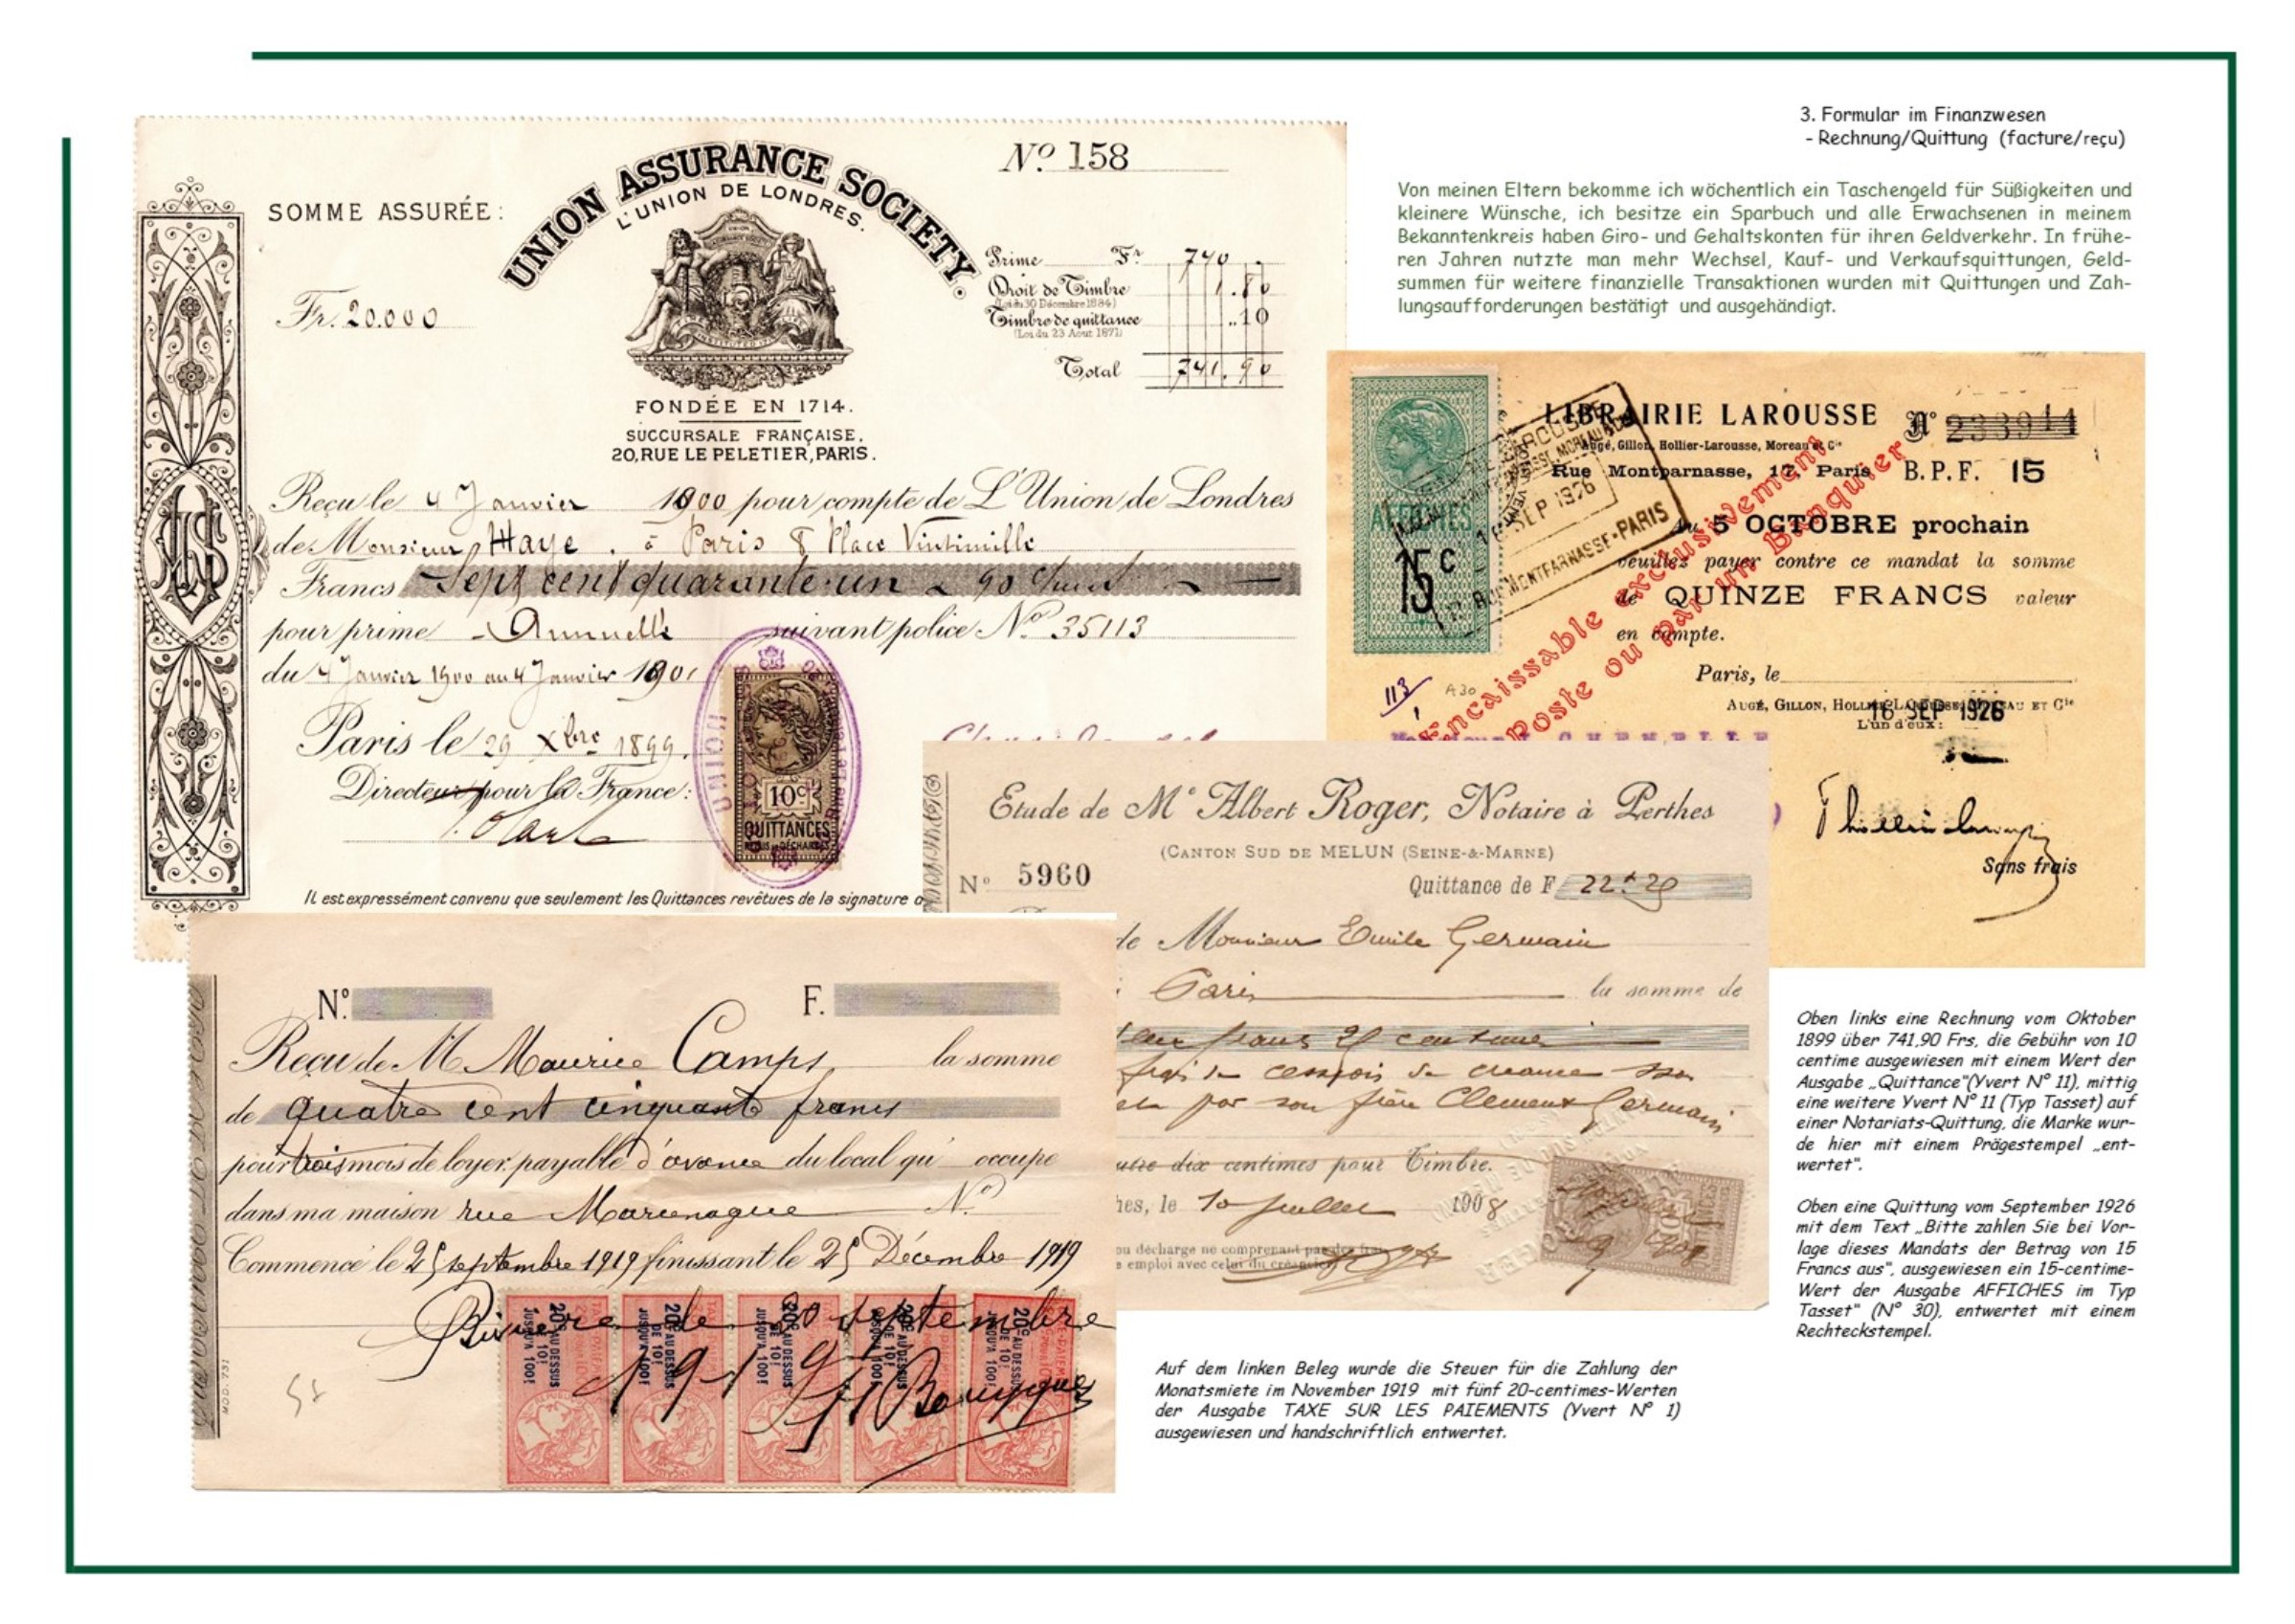 3. Formular im Finanzwesen
- Rechnung/Quittung (facture/reçu)
Von meinen Eltern bekomme ich wöchentlich ein Taschengeld für Süßigkeiten und
kleinere Wünsche, ich besitze ein Sparbuch und alle Erwachsenen in meinem
Bekanntenkreis haben Giro- und Gehaltskonten für ihren Geldverkehr. In frühe-
ren Jahren nutzte man mehr Wechsel, Kauf- und Verkaufsquittungen, Geld-
summen für weitere finanzielle Transaktionen wurden mit Quittungen und Zah-
lungsaufforderungen bestätigt und ausgehändigt.
Nº 158
SOMME ASSURÉE:
UNION ASSURANCE SOCIETY.
L'UNION DE LONDRES.
Fr. 20.000
Prime Fr. 740
Droit de Timbre 1.80
(Loi du 30 Décembre 1884)
Timbre de quittance ..10
(Loi du 23 Aout 1871)
Total 741.90
FONDÉE EN 1714.
SUCCURSALE FRANÇAISE,
20, RUE LE PELETIER, PARIS.
Reçu le 4 Janvier 1900 pour compte de L'Union de Londres
de Monsieur Haye. à Paris 8 Place Vintimille
Francs Sept cent quarante un 90
pour prime Annuelle suivant police Nº 35113
du 4 Janvier 1900 au 4 Janvier 1901
Paris le 29 Xbre 1899.
Directeur pour la France:
10c
QUITTANCES
UNION
Il est expressément convenu que seulement les Quittances revêtues de la signature
LIBRAIRIE LAROUSSE Nº 233944
Augé, Gillon, Hollier-Larousse, Moreau & Cie
Rue Montparnasse, 17, Paris B.P.F. 15
Au 5 OCTOBRE prochain
veuillez payer contre ce mandat la somme
de QUINZE FRANCS valeur
en compte.
Encaissable exclusivement
poste ou par un Banquier
AFFICHES
15c
16 SEP 1926
MONTPARNASSE-PARIS
Paris, le
16 SEP 1926
AUGÉ, GILLON, HOLLIER-LAROUSSE, MOREAU ET Cie
L'un d'eux:
113
A30
Sans frais
Etude de Me Albert Roger, Notaire à Perthes
(CANTON SUD DE MELUN (SEINE-&-MARNE)
Nº 5960
Quittance de F 22
de Monsieur Emile Germain
Paris la somme de
par son frère Clement Germain
outre dix centimes pour Timbre.
hes, le 10 Juillet 1908
ou décharge ne comprenant pas
emploi avec celui du créancier
Nº. F.
Reçu de M Maurice Camps la somme
de quatre cent cinquante francs
pour trois mois de loyer, payable d'avance du local qu' occupe
dans ma maison rue Nº
Commencé le 25 septembre 1919 finissant le 25 Décembre 1919
20c AU DESSUS DE 10f JUSQU'A 100f
20c AU DESSUS DE 10f JUSQU'A 100f
20c AU DESSUS DE 10f JUSQU'A 100f
20c AU DESSUS DE 10f JUSQU'A 100f
20c AU DESSUS DE 10f JUSQU'A 100f
de 20 septembre
1919
MOD. 731
Oben links eine Rechnung vom Oktober
1899 über 741,90 Frs, die Gebühr von 10
centime ausgewiesen mit einem Wert der
Ausgabe „Quittance"(Yvert Nº 11), mittig
eine weitere Yvert Nº 11 (Typ Tasset) auf
einer Notariats-Quittung, die Marke wur-
de hier mit einem Prägestempel „ent-
wertet".
Oben eine Quittung vom September 1926
mit dem Text „Bitte zahlen Sie bei Vor-
lage dieses Mandats der Betrag von 15
Francs aus", ausgewiesen ein 15-centime-
Wert der Ausgabe AFFICHES im Typ
Tasset" (Nº 30), entwertet mit einem
Rechteckstempel.
Auf dem linken Beleg wurde die Steuer für die Zahlung der
Monatsmiete im November 1919 mit fünf 20-centimes-Werten
der Ausgabe TAXE SUR LES PAIEMENTS (Yvert Nº 1)
ausgewiesen und handschriftlich entwertet.